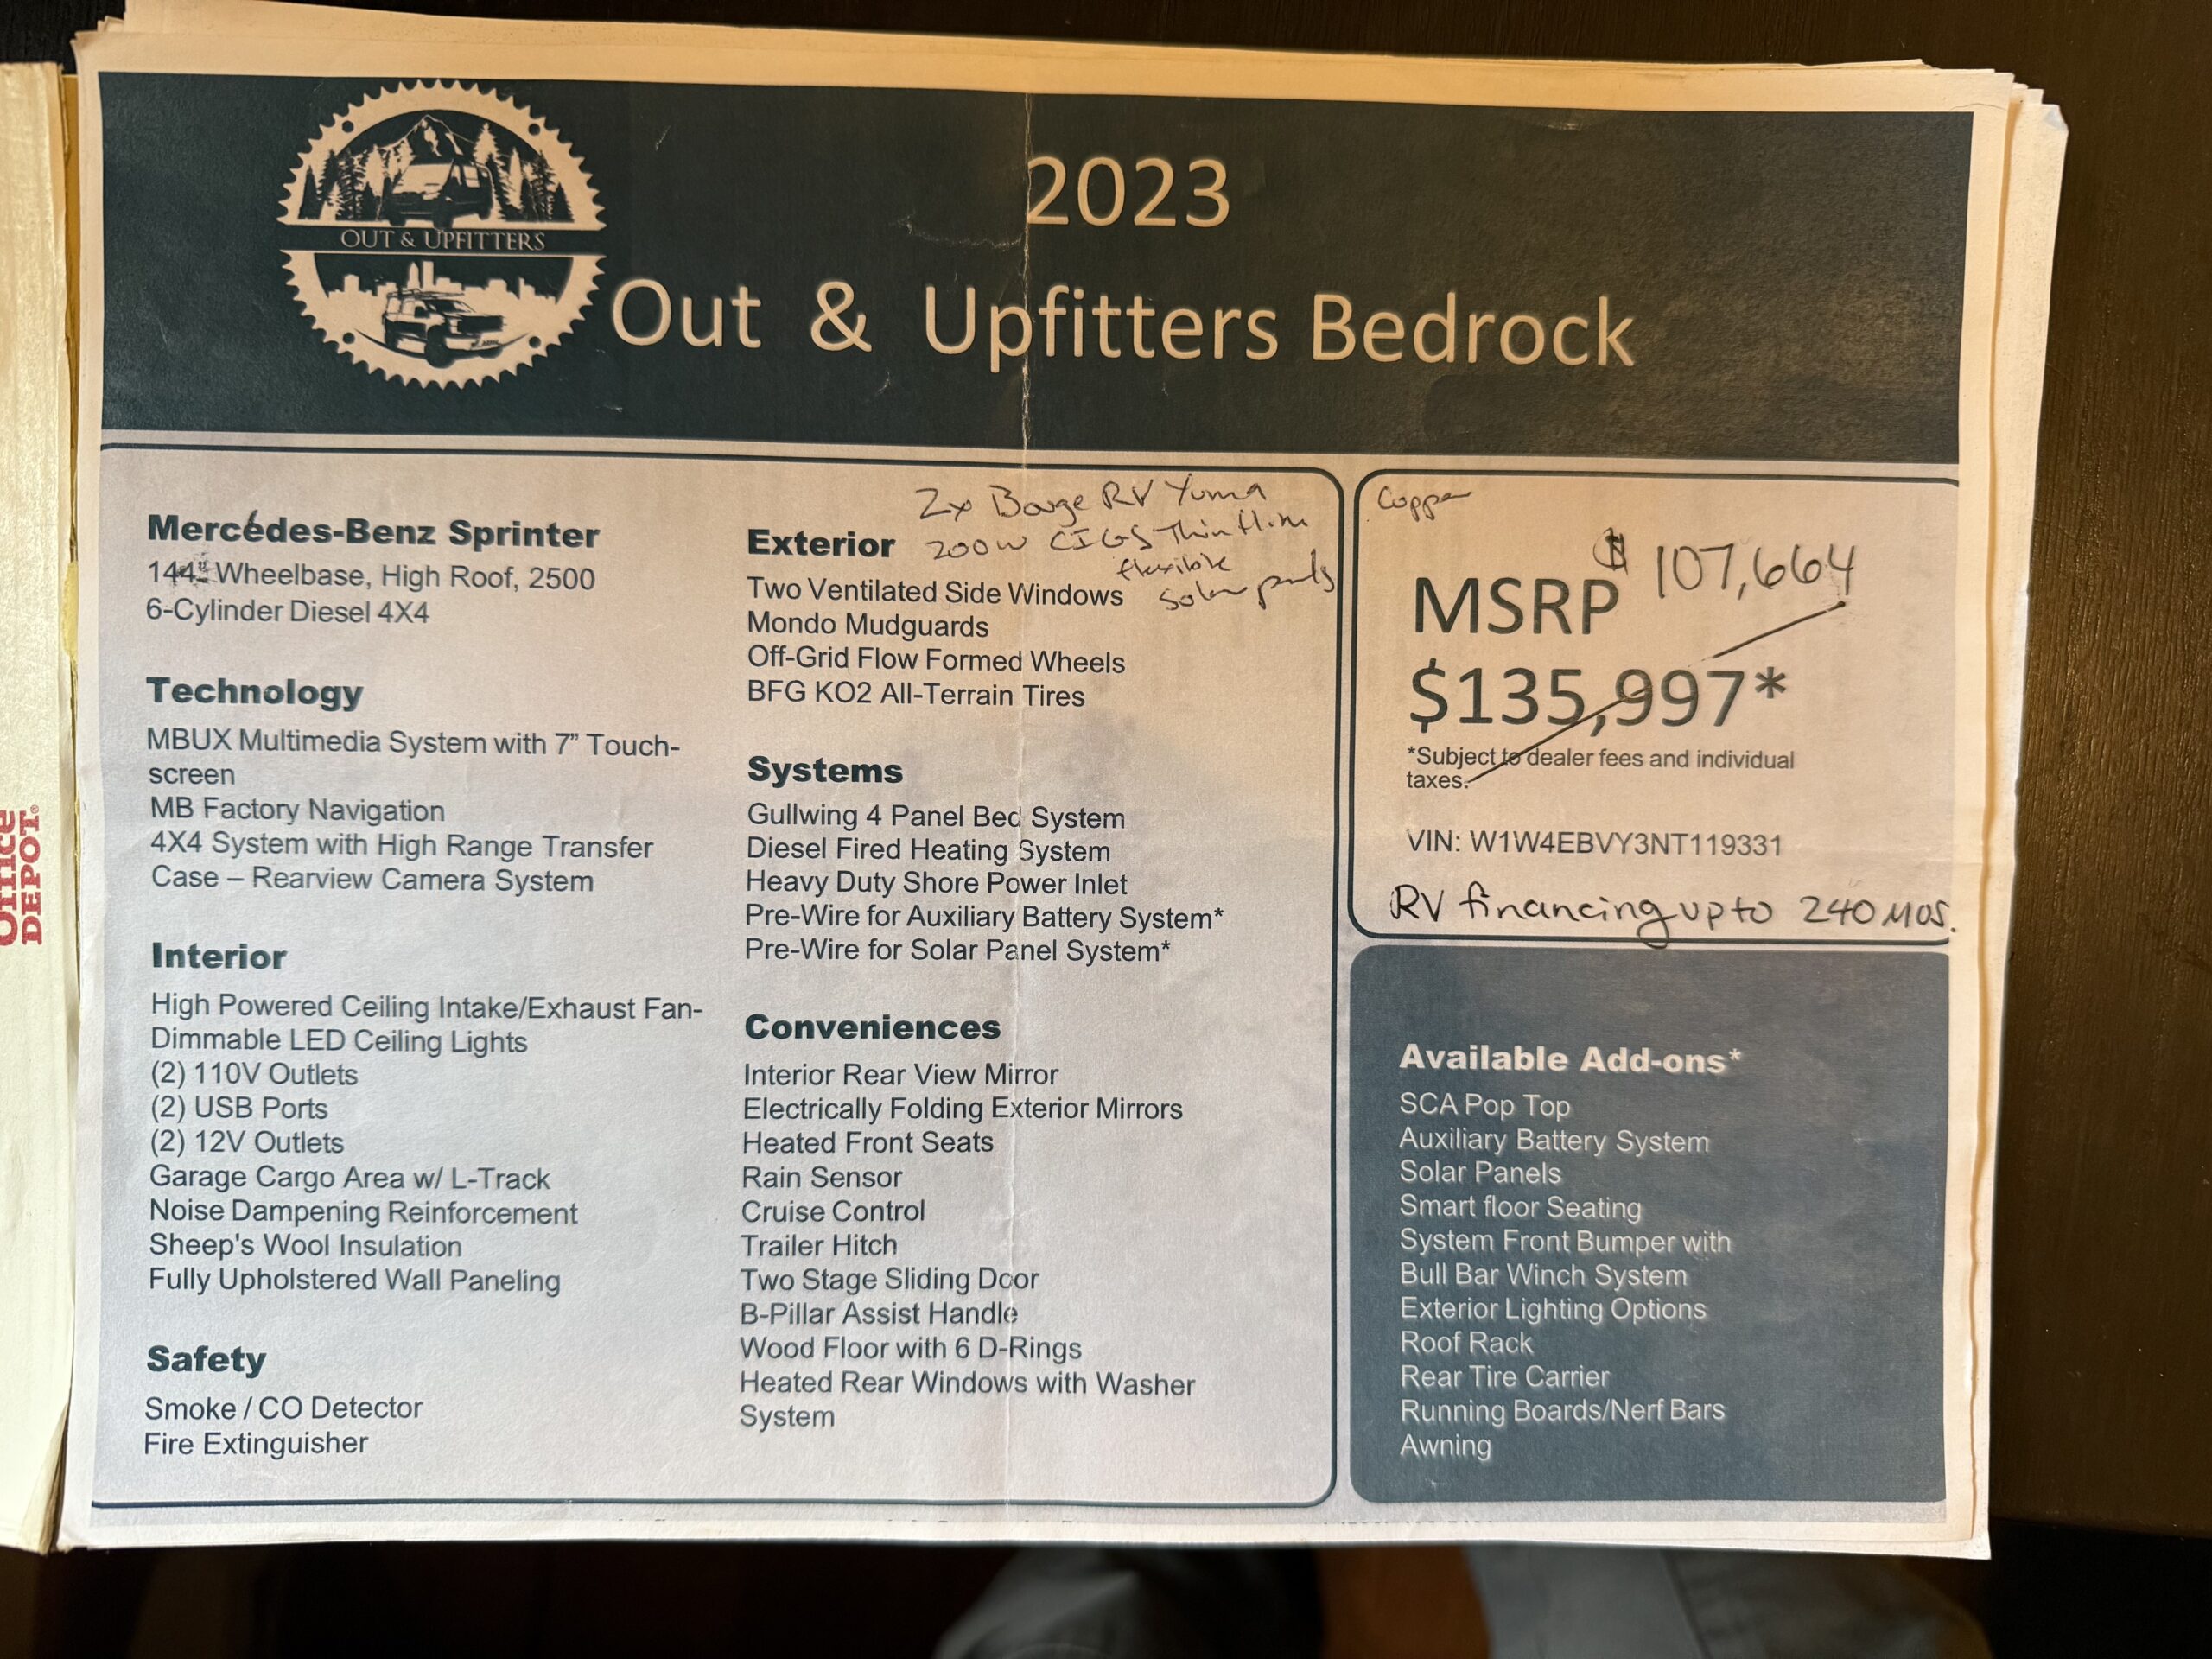 OUT & UPFITTERS
2023
Out & Upfitters Bedrock
Office
DEPOT®
Mercedes-Benz Sprinter
144" Wheelbase, High Roof, 2500
6-Cylinder Diesel 4X4
Technology
MBUX Multimedia System with 7” Touch-
screen
MB Factory Navigation
4X4 System with High Range Transfer
Case – Rearview Camera System
Interior
High Powered Ceiling Intake/Exhaust Fan-
Dimmable LED Ceiling Lights
(2) 110V Outlets
(2) USB Ports
(2) 12V Outlets
Garage Cargo Area w/ L-Track
Noise Dampening Reinforcement
Sheep's Wool Insulation
Fully Upholstered Wall Paneling
Safety
Smoke / CO Detector
Fire Extinguisher
2x Bouge RV Yuma
200W CIGS Thin film
flexible
solar panels
Exterior
Two Ventilated Side Windows
Mondo Mudguards
Off-Grid Flow Formed Wheels
BFG KO2 All-Terrain Tires
Systems
Gullwing 4 Panel Bed System
Diesel Fired Heating System
Heavy Duty Shore Power Inlet
Pre-Wire for Auxiliary Battery System*
Pre-Wire for Solar Panel System*
Conveniences
Interior Rear View Mirror
Electrically Folding Exterior Mirrors
Heated Front Seats
Rain Sensor
Cruise Control
Trailer Hitch
Two Stage Sliding Door
B-Pillar Assist Handle
Wood Floor with 6 D-Rings
Heated Rear Windows with Washer
System
Copper
$ 107,664
MSRP
$135,997*
*Subject to dealer fees and individual
taxes.
VIN: W1W4EBVY3NT119331
RV financing up to 240 mos.
Available Add-ons*
SCA Pop Top
Auxiliary Battery System
Solar Panels
Smart floor Seating
System Front Bumper with
Bull Bar Winch System
Exterior Lighting Options
Roof Rack
Rear Tire Carrier
Running Boards/Nerf Bars
Awning